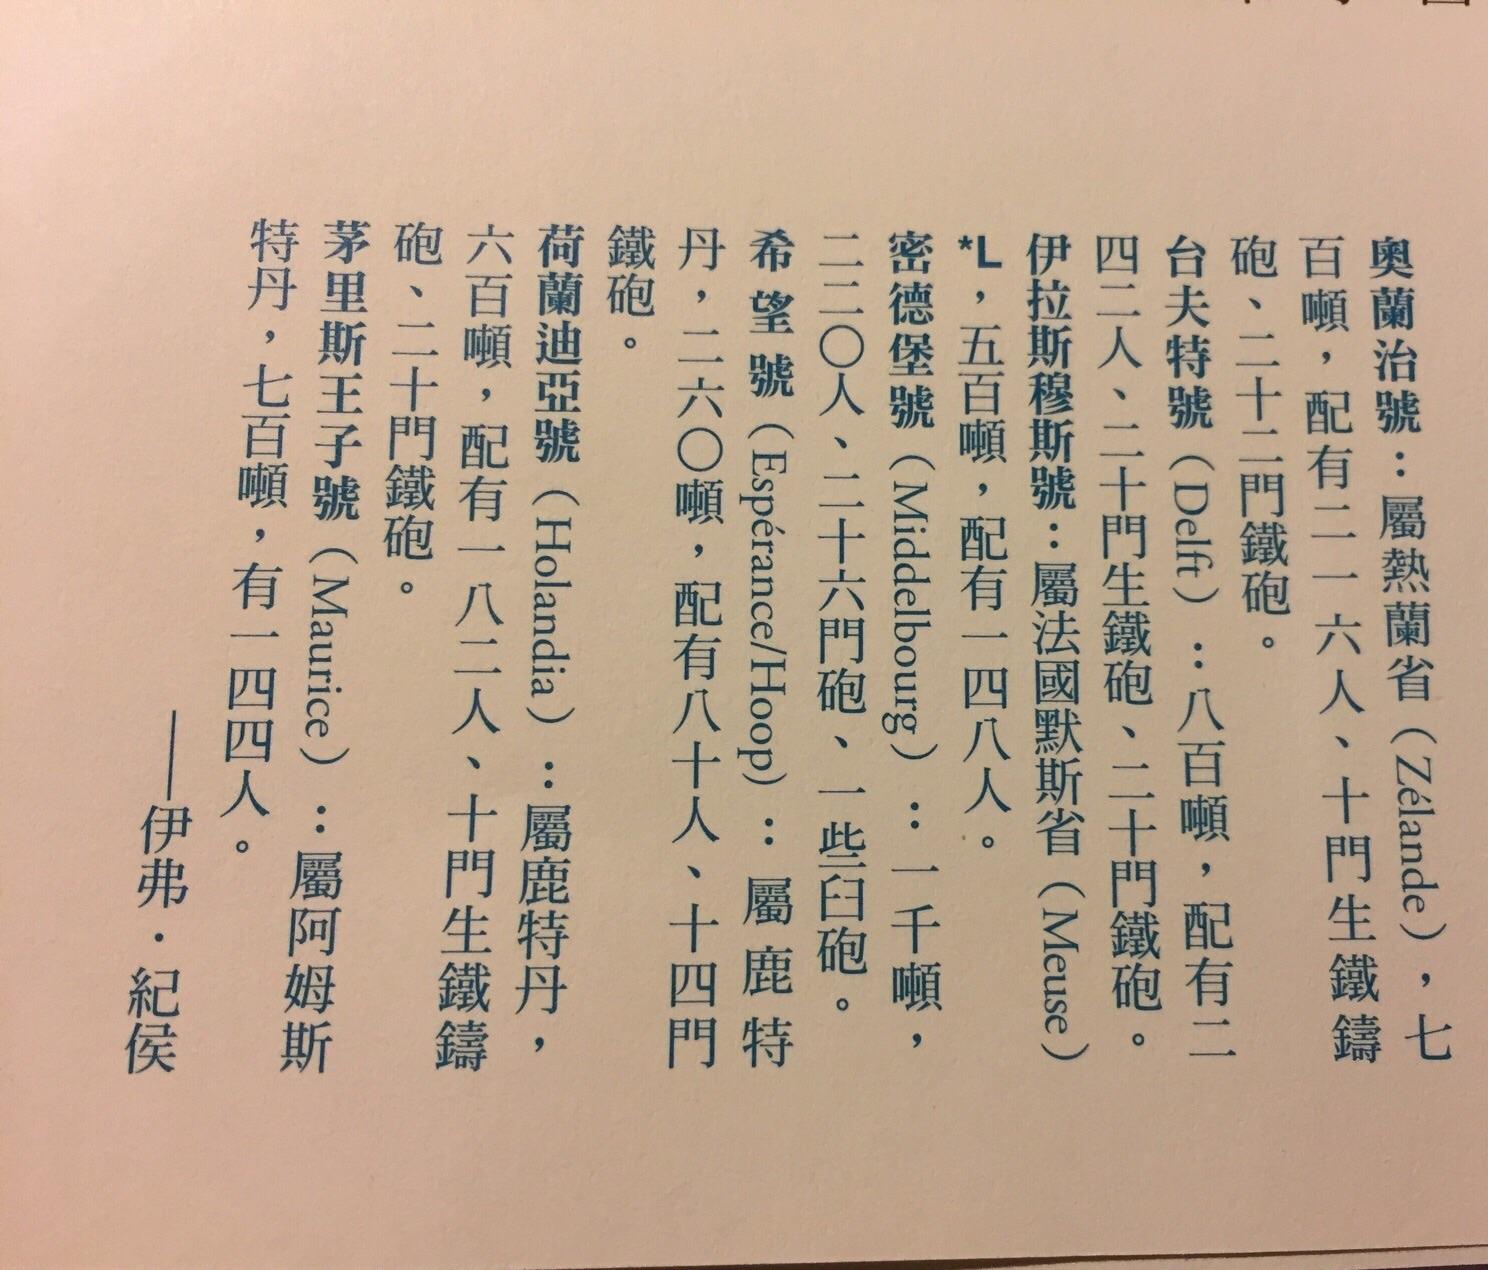 奧蘭治號：屬熱蘭省（Zélande），七
百噸，配有二一六人、十門生鐵鑄
砲、二十二門鐵砲。
台夫特號（Delft）：八百噸，配有二
四二人、二十門生鐵砲、二十門鐵砲。
伊拉斯穆斯號：屬法國默斯省（Meuse）
*L，五百噸，配有一四八人。
密德堡號（Middelbourg）：一千噸，
二二〇人、二十六門砲、一些臼砲。
希望號（Espérance/Hoop）：屬鹿特
丹，二六〇噸，配有八十人、十四門
鐵砲。
荷蘭迪亞號（Holandia）：屬鹿特丹，
六百噸，配有一八二人、十門生鐵鑄
砲、二十門鐵砲。
茅里斯王子號（Maurice）：屬阿姆斯
特丹，七百噸，有一四四人。
——伊弗・紀侯